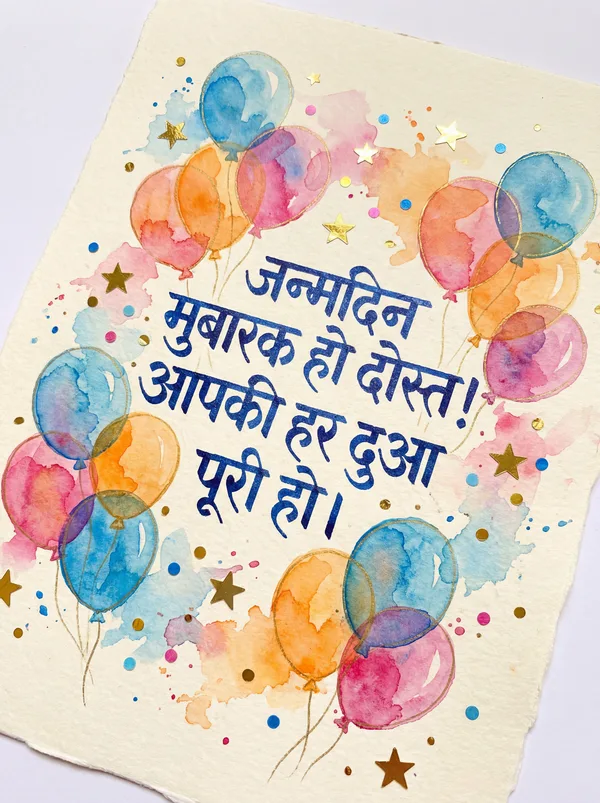 जन्मदिन
मुबारक हो दोस्त!
आपकी हर दुआ
पूरी हो।